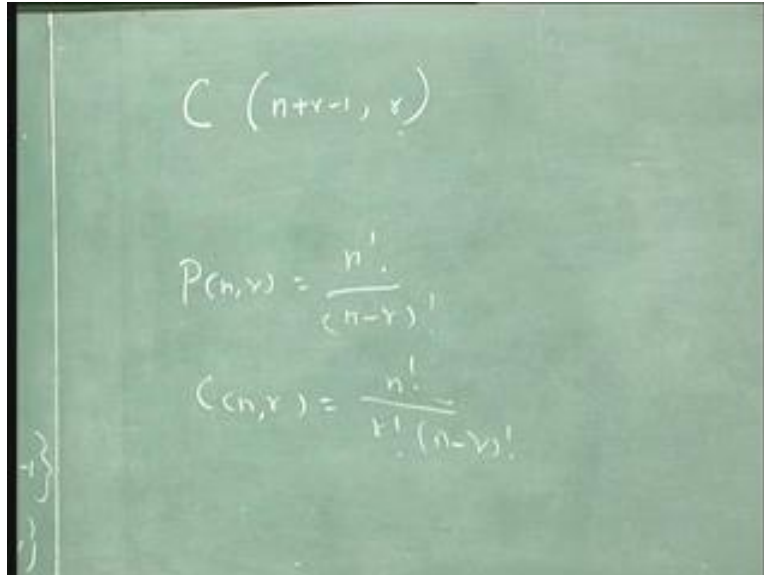 C (n+r-1, r)
P(n,r) = n! / (n-r)!
C(n,r) = n! / r! (n-r)!
-1}
}